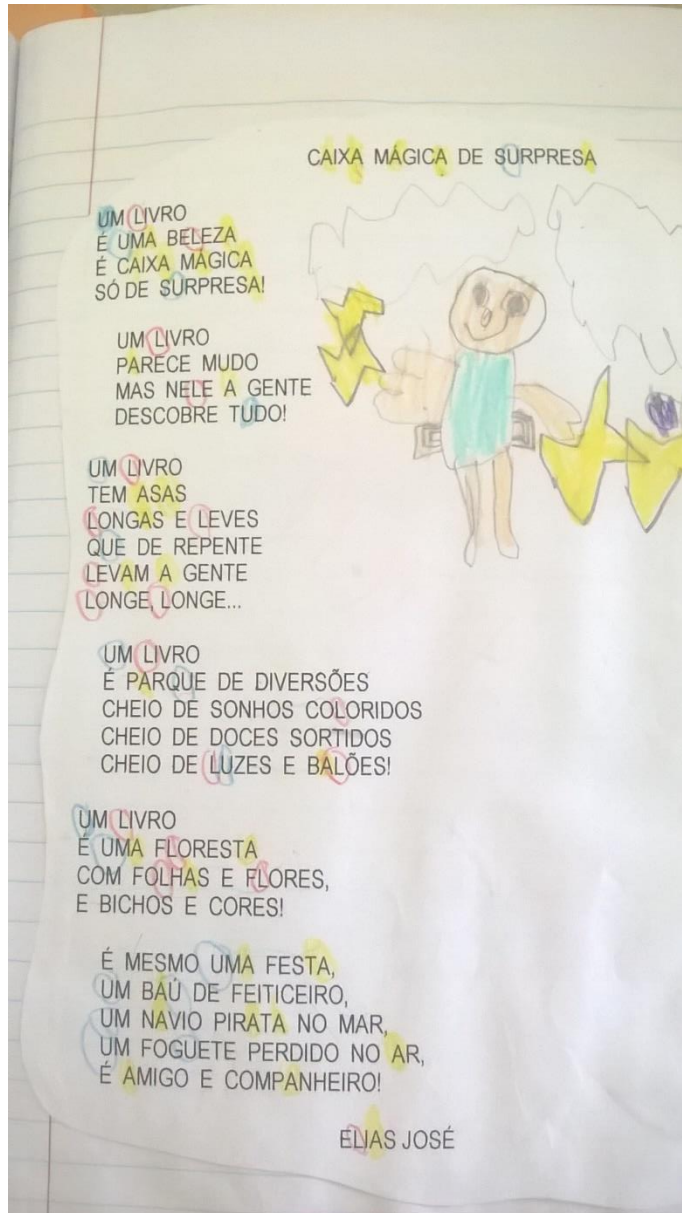 CAIXA MÁGICA DE SURPRESA
UM LIVRO
É UMA BELEZA
É CAIXA MÁGICA
SÓ DE SURPRESA!
UM LIVRO
PARECE MUDO
MAS NELE A GENTE
DESCOBRE TUDO!
UM LIVRO
TEM ASAS
LONGAS E LEVES
QUE DE REPENTE
LEVAM A GENTE
LONGE, LONGE...
UM LIVRO
É PARQUE DE DIVERSÕES
CHEIO DE SONHOS COLORIDOS
CHEIO DE DOCES SORTIDOS
CHEIO DE LUZES E BALÕES!
UM LIVRO
É UMA FLORESTA
COM FOLHAS E FLORES,
E BICHOS E CORES!
É MESMO UMA FESTA,
UM BAÚ DE FEITICEIRO,
UM NAVIO PIRATA NO MAR,
UM FOGUETE PERDIDO NO AR,
É AMIGO E COMPANHEIRO!
ELIAS JOSÉ